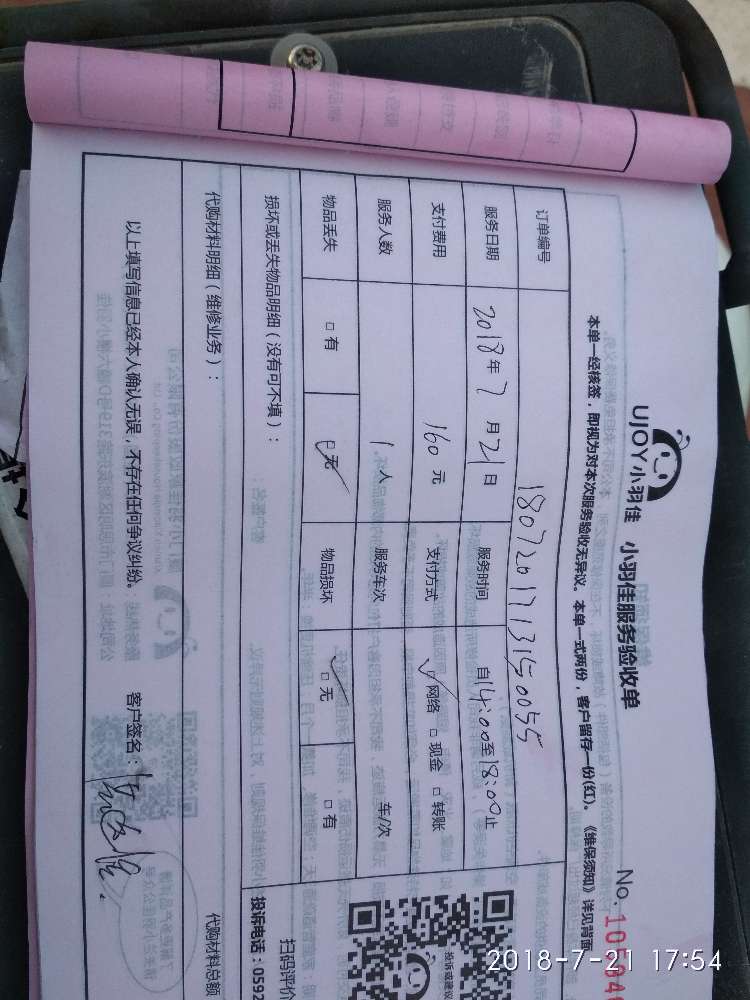 UJOY小羽佳 小羽佳服务验收单
No. 10594
本单一经核签，即视为对本次服务验收无异议。本单一式两份，客户留存一份(红)。《维保须知》详见背面
订单编号 1807201713150055
服务日期 2018年7月21日 服务时间 自14:00至18:00止
支付费用 160元 支付方式 ☑网络 □现金 □转账
服务人数 1人 服务车次 车/次
物品丢失 □有 ☑无 物品损坏 ☑无 □有
损坏或丢失物品明细（没有可不填）：
扫码评价
投诉或建议
投诉电话：0592
代购材料明细（维修业务）：
代购材料总额
以上填写信息已经本人确认无误，不存在任何争议纠纷。 客户签名：
2018-7-21 17:54